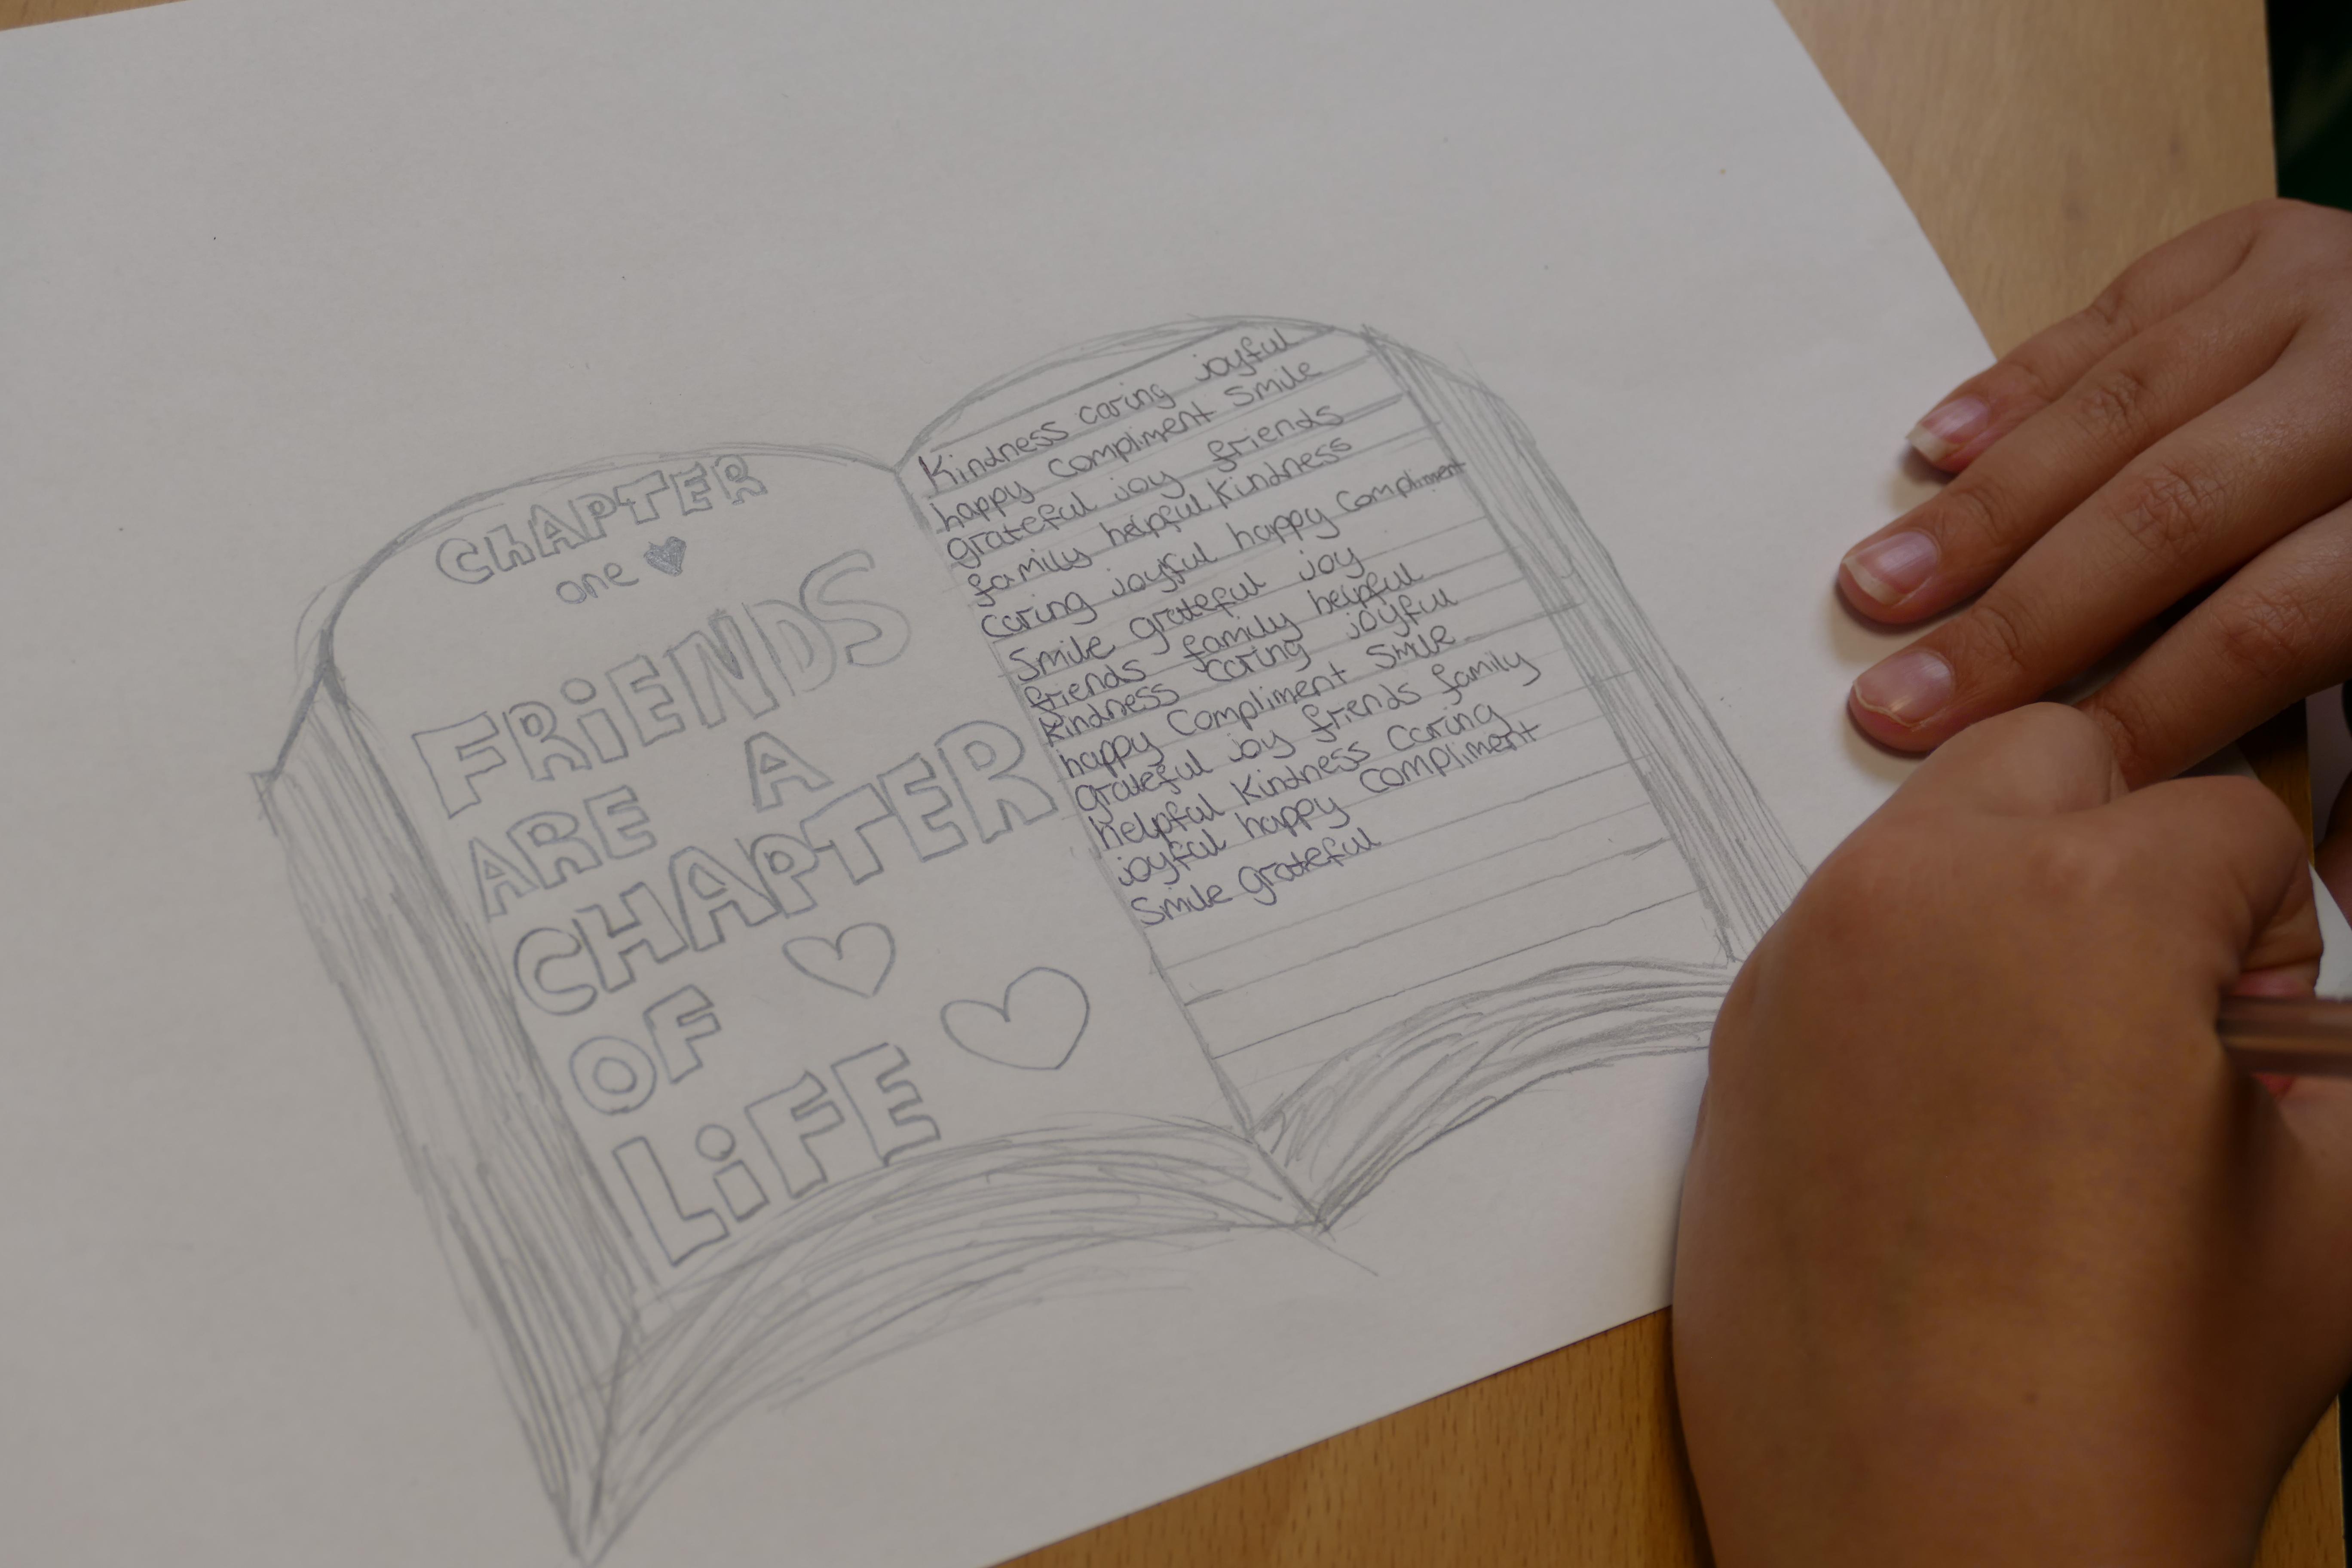 CHAPTER
one
FRiENDS
ARE A
CHAPTER
OF
LiFE
Kindness caring joyful
happy compliment Smile
grateful joy friends
family helpful Kindness
caring joyful happy Compliment
Smile grateful joy
friends family helpful
kindness caring joyful
happy Compliment Smile
grateful joy friends family
helpful Kindness Caring
joyful happy compliment
Smile grateful